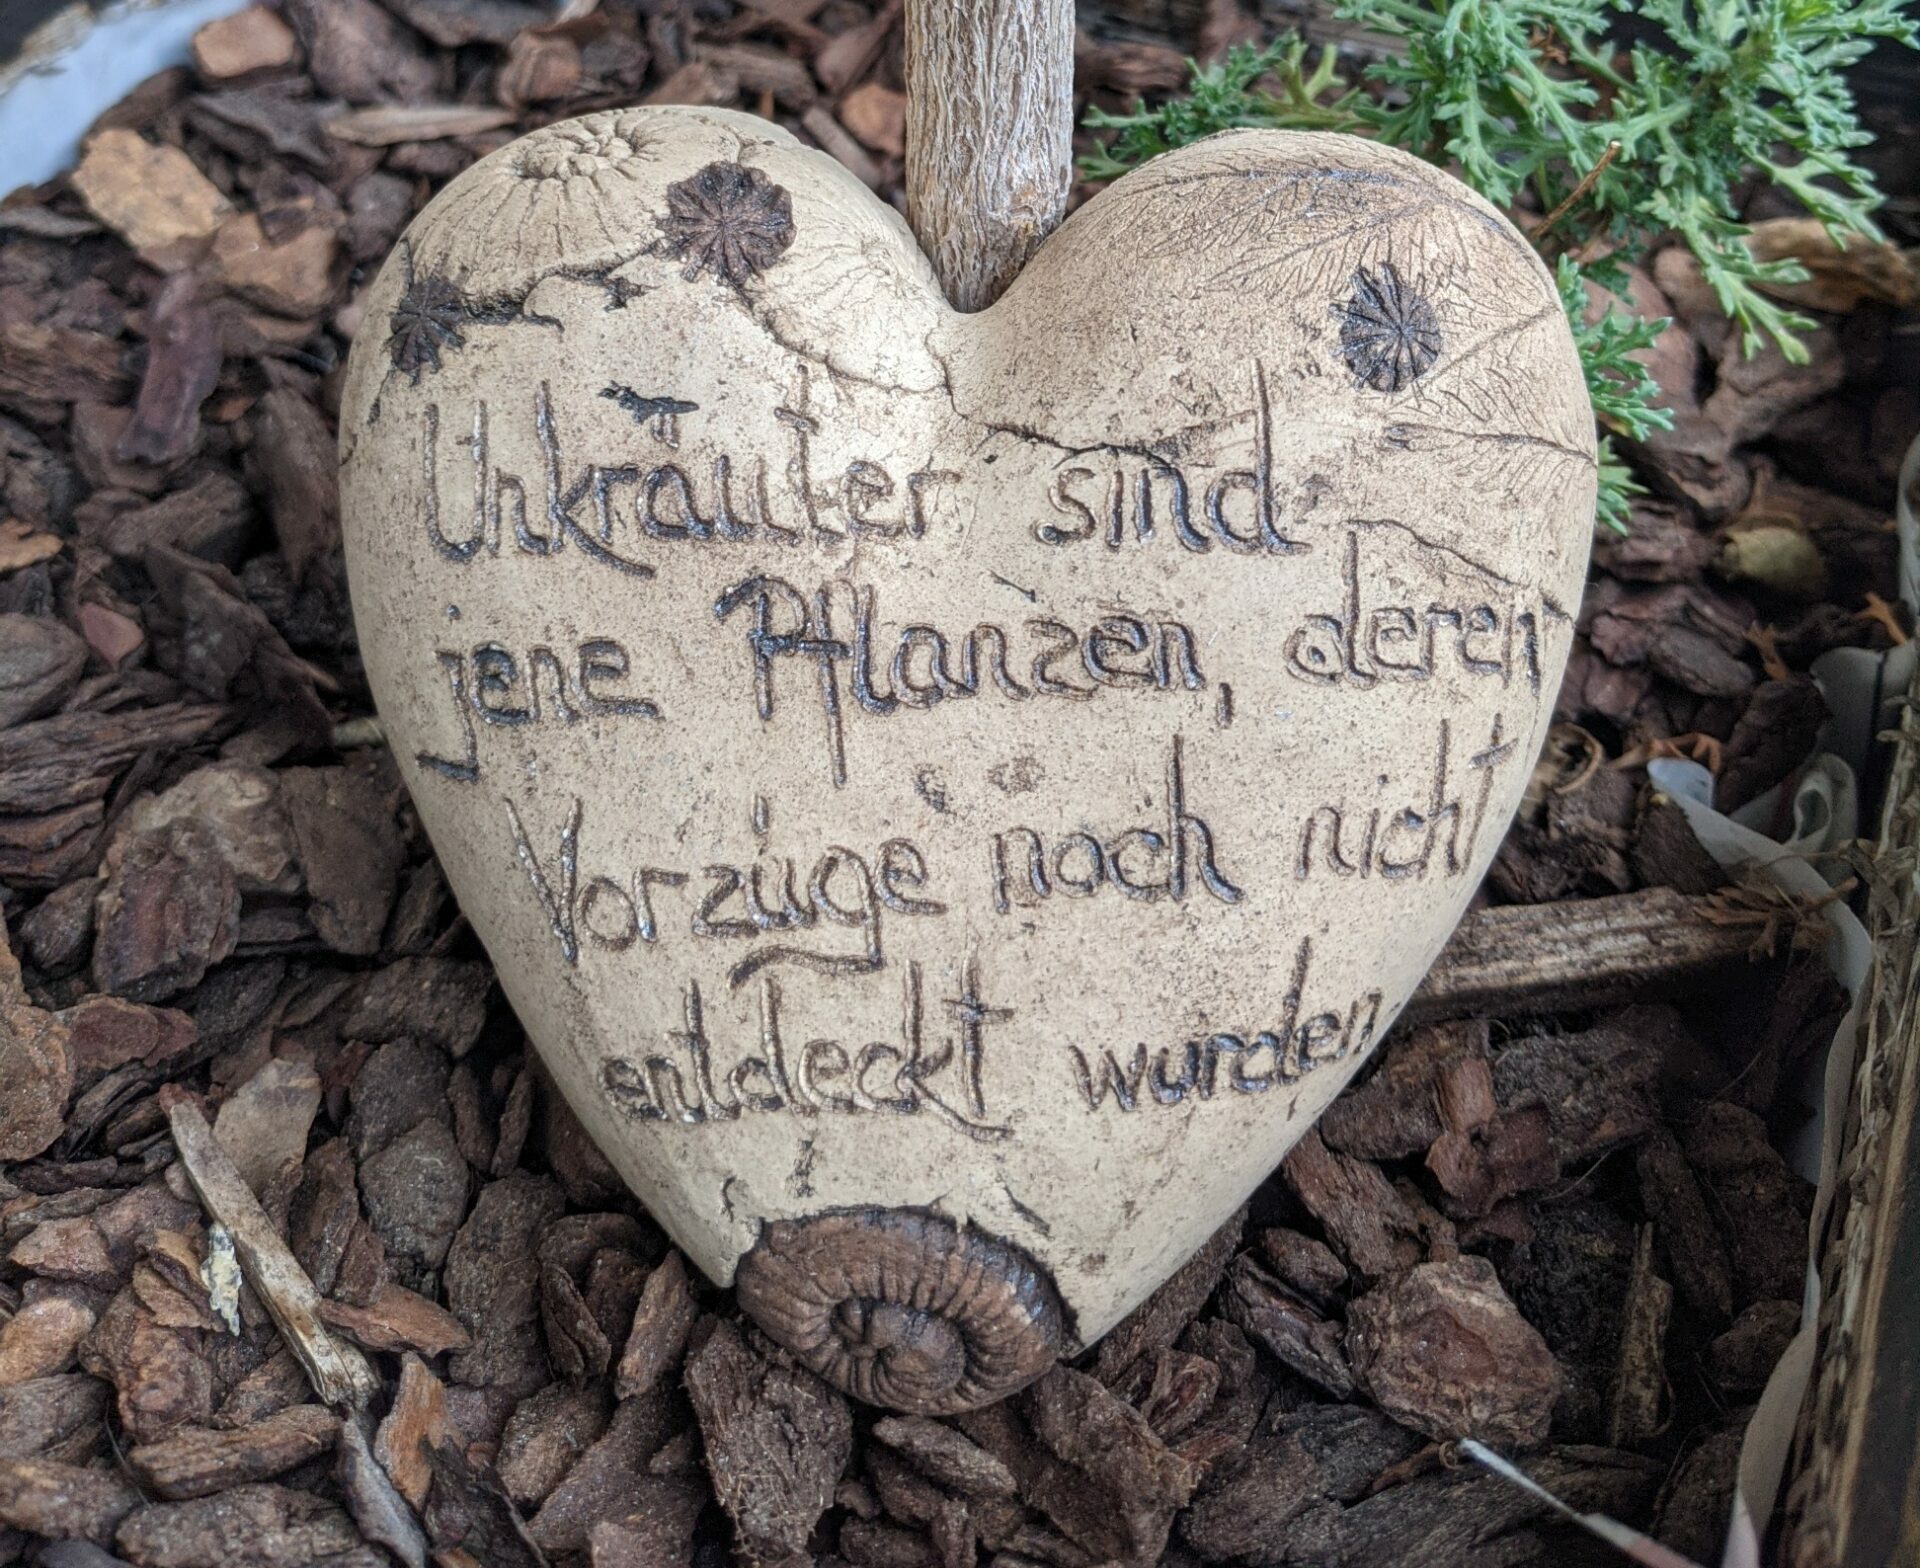 Unkräuter sind
jene Pflanzen, deren
Vorzüge noch nicht
entdeckt wurden.